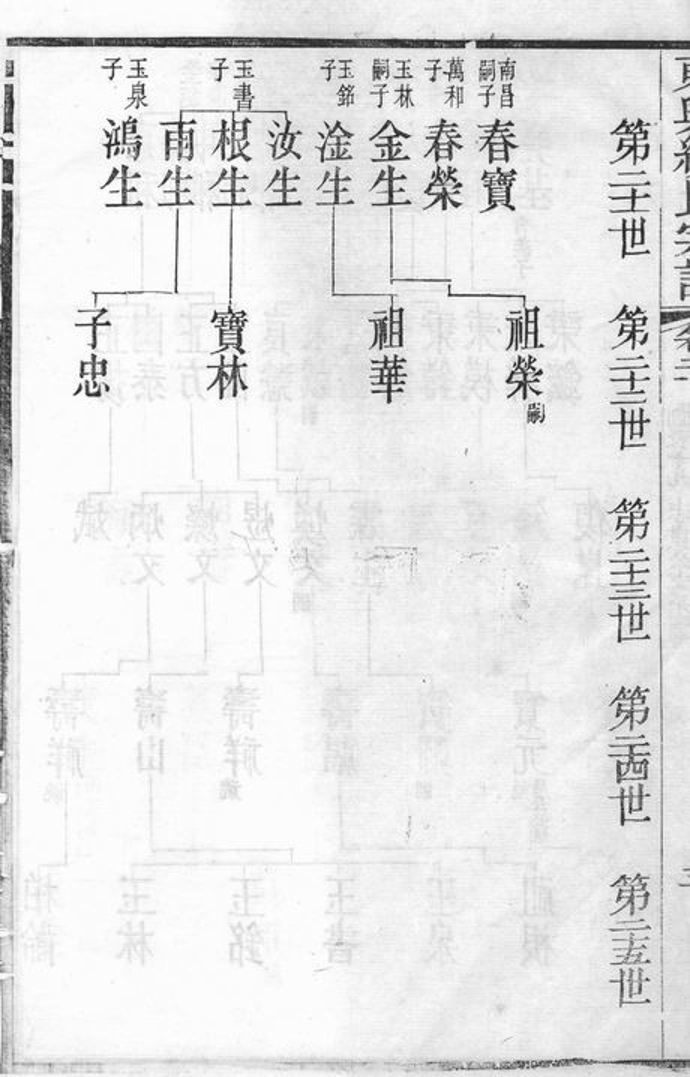 第二十一世
第二十二世
第二十三世
第二十四世
第二十五世
南昌
嗣子
春寶
萬和
子
春榮
玉林
嗣子
金生
玉銘
子
淦生
汝生
玉書
子
根生
雨生
玉泉
子
鴻生
祖榮嗣
祖華
寶林
子忠